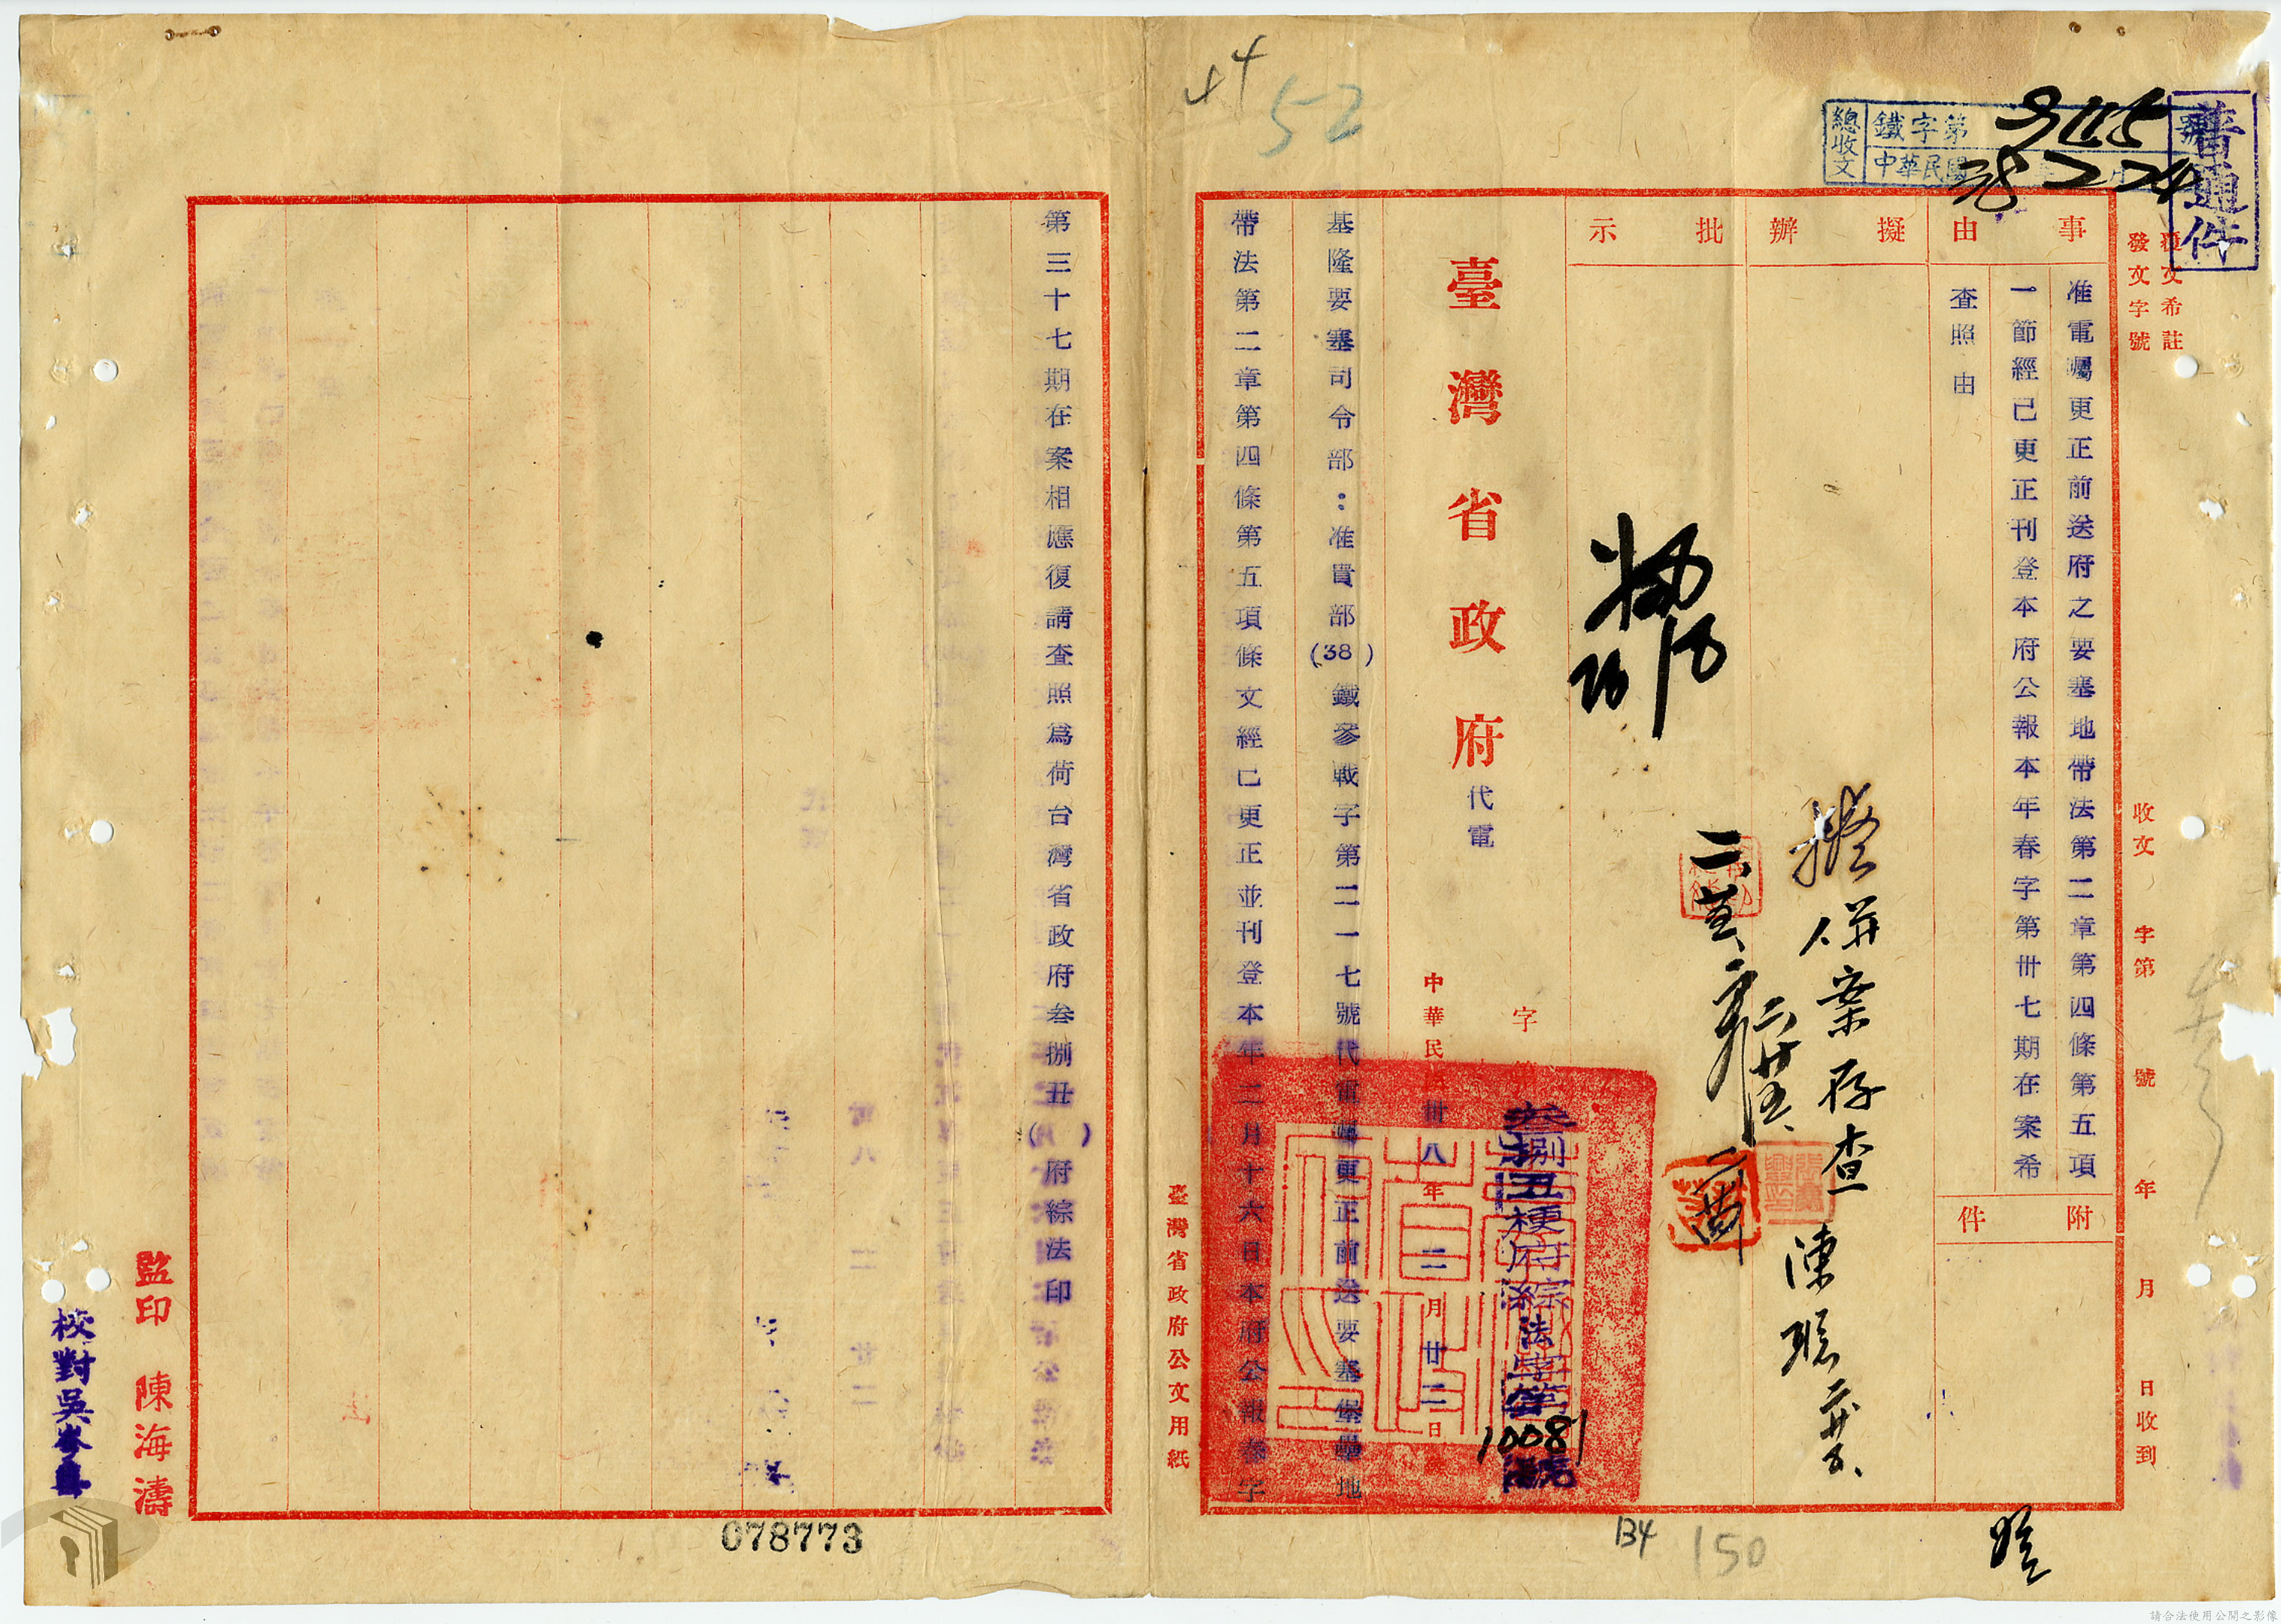 普通件
總收文
鐵字第 號
中華民國
44
52
覆文希註
發文字號
收文 字第 號 年 月 日收到
事由
准電囑更正前送府之要塞地帶法第二章第四條第五項
一節經已更正刊登本府公報本年春字第卅七期在案希
查照由
附件
擬辦
擬併案存查
批示
臺灣省政府代電
叁捌丑梗府綜法字第
10081
號
中華民國卅八年二月廿二日
基隆要塞司令部：准貴部(38)鐵參戰字第二一七號代電囑更正前送要塞堡壘地
帶法第二章第四條第五項條文經已更正並刊登本年二月十六日本府公報春字
臺灣省政府公文用紙
第三十七期在案相應復請查照爲荷台灣省政府叁捌丑( )府綜法印
監印 陳海濤
校對吳
078773
B4
150
請合法使用公開之影像